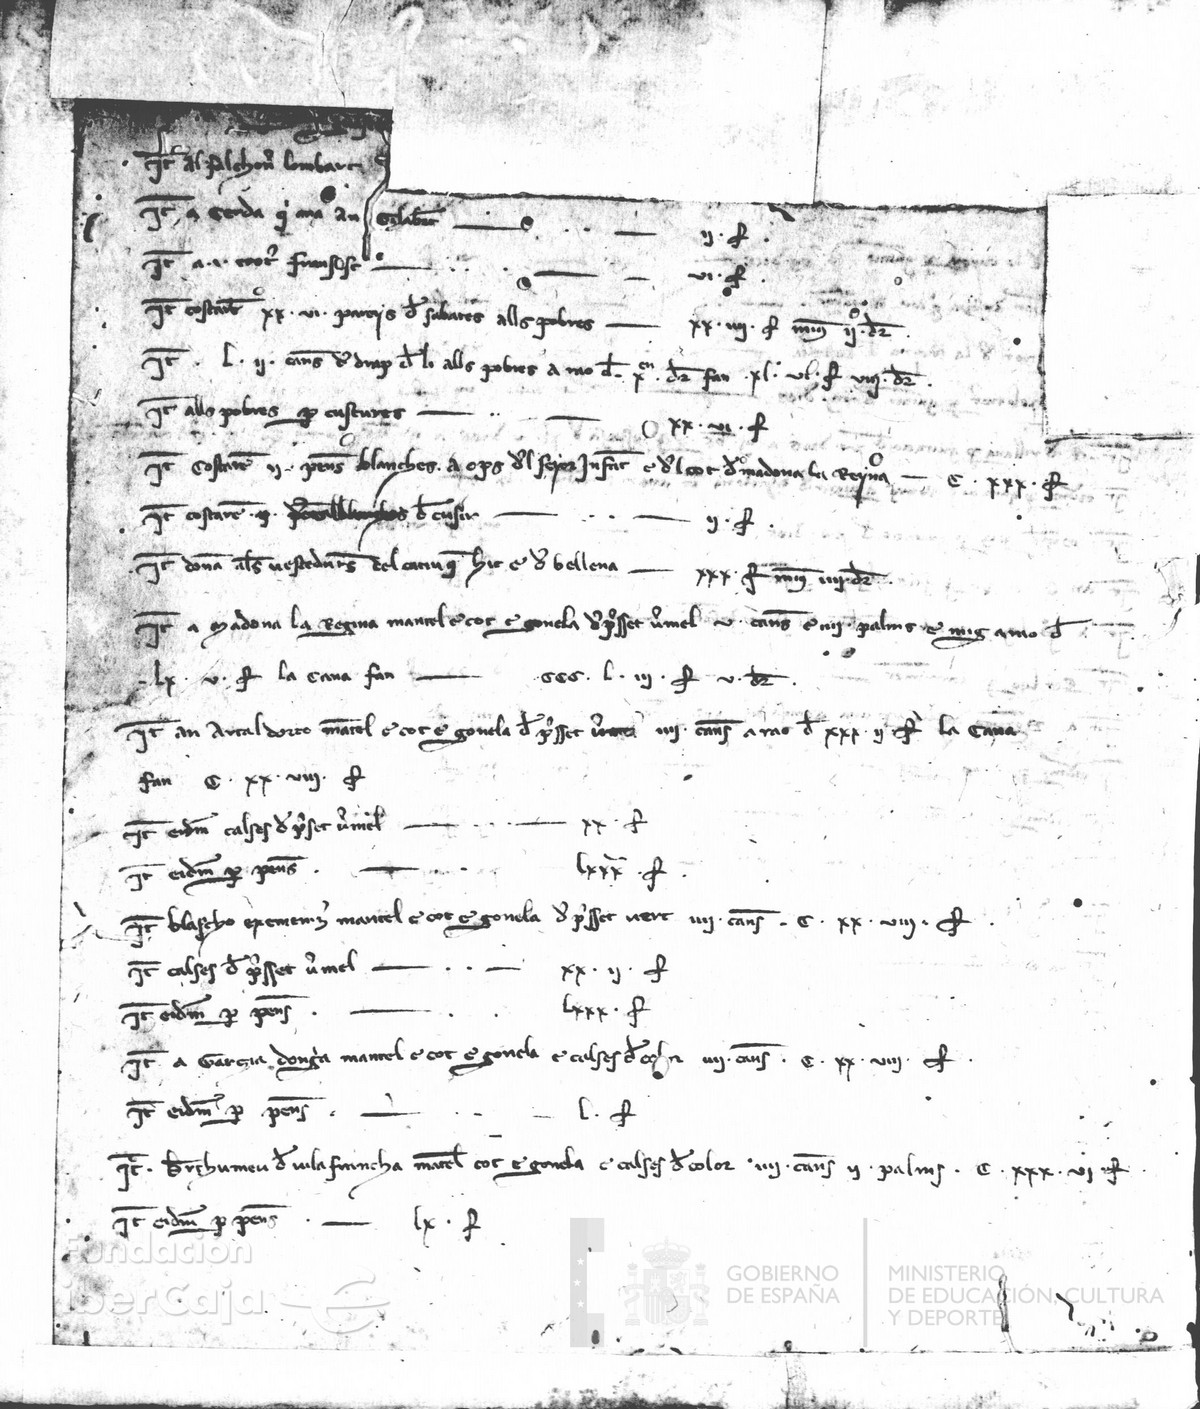 It al falchoner lombart
It a Cerda q ana an Gilabt — ii · ss ·
It a · i · trot Fransesc — vi · ss ·
It costare xx · vi · pareys d sabates alls pobres — xx · iiii · ss meyns ii · dr ·
It · L · ii · cans de drap d li alls pobres a rao d · x · dr fan · xl · vi · ss viii · dr ·
It alls pobres p custures — xx · vi · ss
It Costare ii · penes blanches · a ops del seyor Infat e del cot de madona la Reyna — C · xxx · ss
It costare · d cusir — ii · ss ·
It dona als vestedures del catiu q hic e d bellena — xxx · ss meyns iiii · dr ·
It a Madona la Regina mantel e cot e gonela d presset vmel v · cans e iiii · palms e mig a rao d
lx · v · ss la Cana fan — CCC · L · iii · ss v · dr ·
It an Artal dorto matel e cot e gonela d presset iiii · cans a rao d xxx · ii ss la Cana
fan C · xx · viii · ss
It eidm calses d preset vmel — xx · ss
It eidm p penes · — lxxx · ss ·
It blascho exemenis mantel e cot e gonela d presset vert iiii · cans · C · xx · viii · ss ·
It calses d presset vmel — xx · ii · ss
It eidm p penes · — lxxx · ss
It a Garcia mantel e cot e gonela e calses d color iiii · cans · C · xx · viii · ss ·
It eidm p penes · — L · ss
It · Brthumeu d vilafrancha matel cot e gonela e calses d color iiii · cans ii · palms · C · xxx · vi · ss ·
It eidm p penes · — lx · ss
Fundación
iberCaja
GOBIERNO
DE ESPAÑA
MINISTERIO
DE EDUCACIÓN, CULTURA
Y DEPORTE